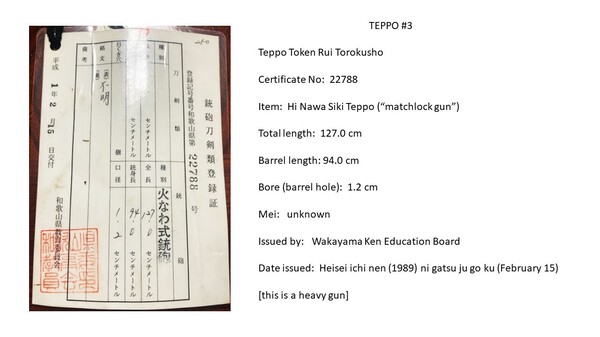 TEPPO #3
Teppo Token Rui Torokusho
Certificate No: 22788
Item: Hi Nawa Siki Teppo (“matchlock gun”)
Total length: 127.0 cm
Barrel length: 94.0 cm
Bore (barrel hole): 1.2 cm
Mei: unknown
Issued by: Wakayama Ken Education Board
Date issued: Heisei ichi nen (1989) ni gatsu ju go ku (February 15)
[this is a heavy gun]
銃砲刀剣類登録証
登録記号番号和歌山県第 22788 号
刀剣類
銃砲
種別
種別 火なわ式銃砲
センチメートル
全長 127.0 センチメートル
センチメートル
銃身長 94.0 センチメートル
目くぎ穴 個
口径 1.2 センチメートル
銘文 (表) 不明
備考
平成 1 年 2 月 15 日交付
和歌山県教育委員会